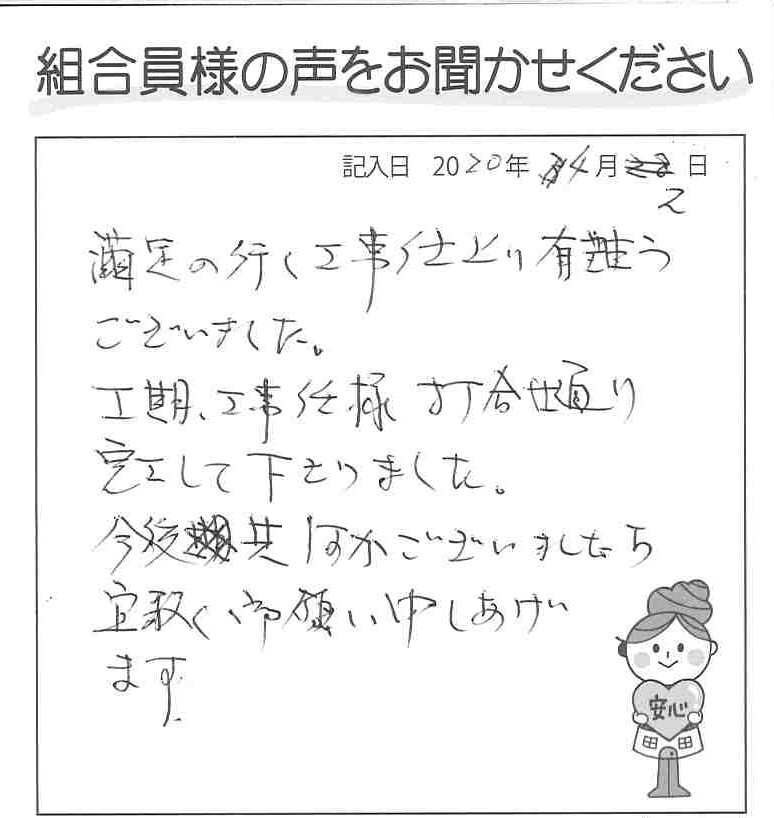 組合員様の声をお聞かせください
記入日 2020年 4月 2日
満足の行く工事仕上り有難う
ございました。
工期、工事仕様 打合せ通り
完工して下さりました。
今後共何かございましたら
宜敷く御願い申しあげ
ます.
安心